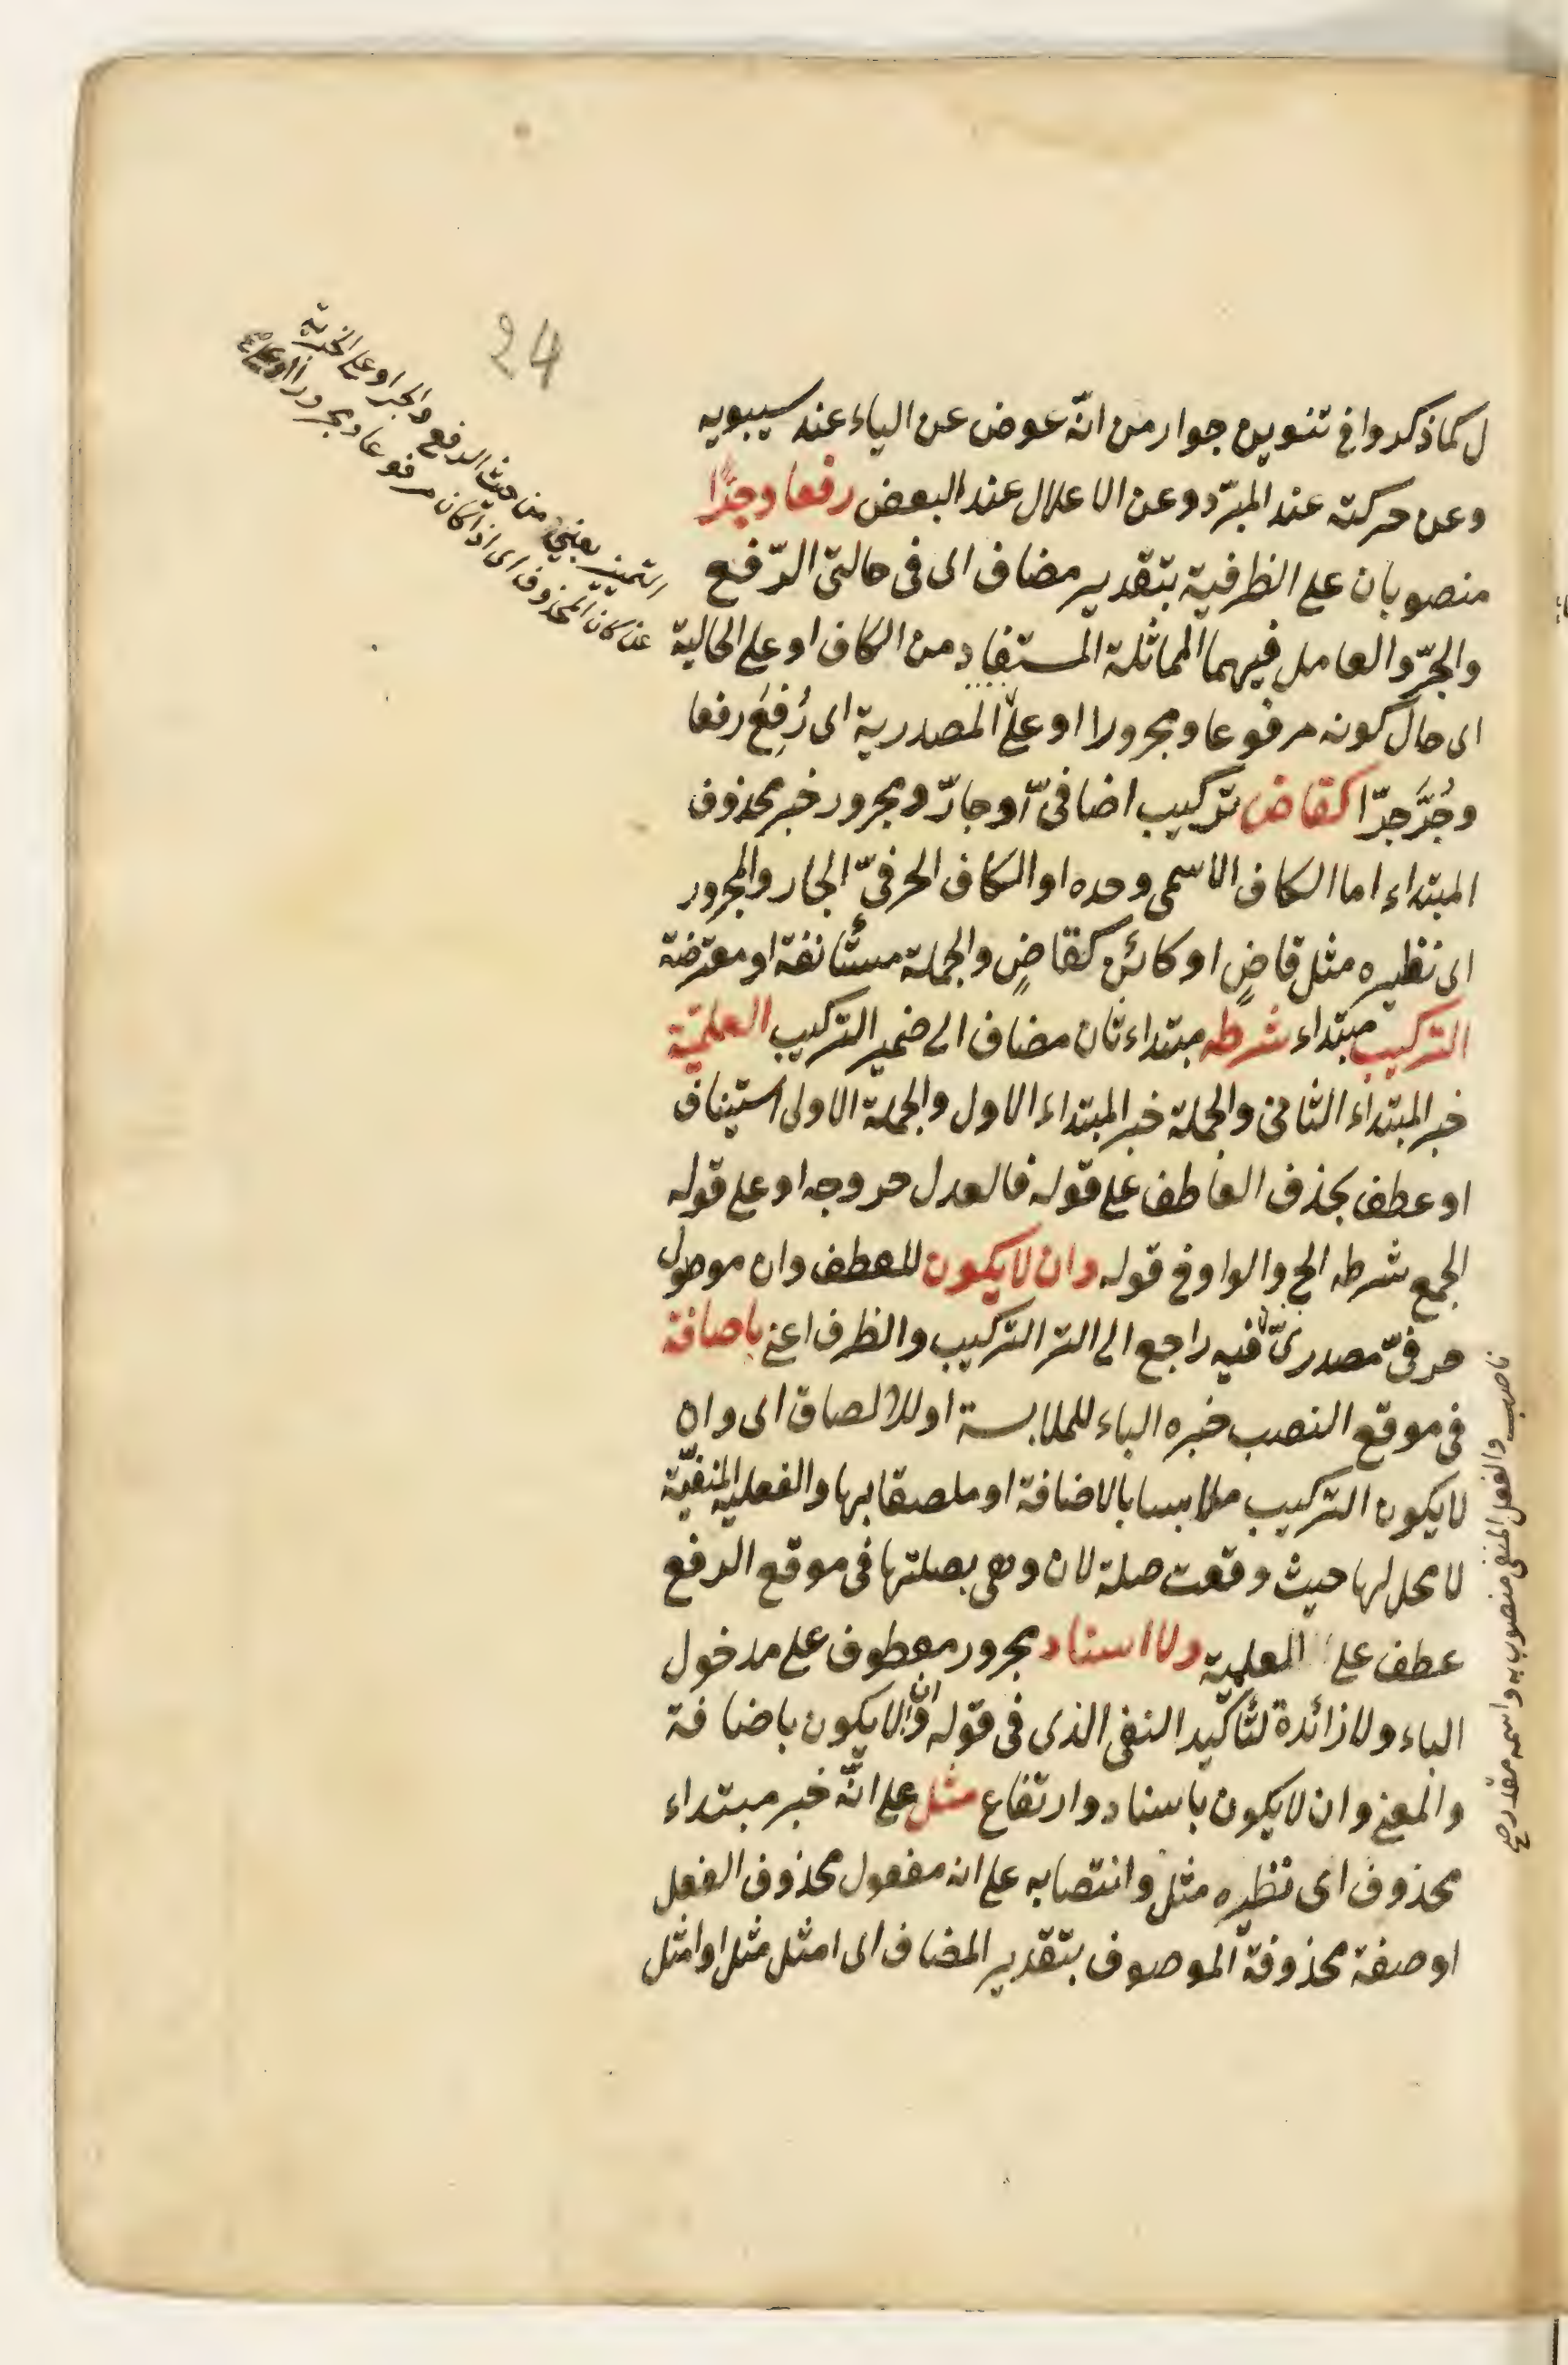 24
ل كما ذكروا في تنوين جوار من انّه عوض عن الياء عند سيبويه
وعن حركته عند المبرّد وعن الاعلال عند البعض رفعا وجرّا
منصوبان على الظرفية بتقدير مضاف اى فى حالتى الرّفع
والجرّ والعامل فيهما المماثلة المستفاد من الكاف او على الحالية
اى حال كونه مرفوعا ومجرورا او على المصدرية اى رُفِعَ رفعا
وجُرَّ جرّا كقاض تركيب اضافىّ او جارّ ومجرور خبر محذوف
المبتداء اما الكاف الاسمى وحده او الكاف الحرفىّ الجار والمجرور
اى نظيره مثل قاضٍ او كائن كقاضٍ والجملة مستأنفة او معترضة
التركيب مبتداء شرطه مبتداء ثان مضاف الى ضمير التركيب العلميّة
خبر المبتداء الثانى والجملة خبر المبتداء الاول والجملة الاولى استيناف
او عطف بحذف العاطف على قوله فالعدل خروجه او على قوله
الجمع شرطه الخ والواو فى قوله وان لا يكون للعطف وان موصول
حرفىّ مصدرىّ فيه راجع الى التر التركيب والظرف اعنى باضافة
فى موقع النصب خبره الباء للملابسة او للالصاق اى وان
لا يكون التركيب ملابسا بالاضافة او ملصقا بها والفعلية المنفيّة
لا محل لها حيث وقعت صلة لان وهى بصلتها فى موقع الرفع
عطف على العلمية ولا اسناد مجرور معطوف على مدخول
الباء ولا زائدة لتأكيد النفى الذى فى قوله وان لا يكون باضافة
والمعنى وان لا يكون باسناد وارتفاع مثل على انّه خبر مبتداء
محذوف اى نظيره مثل وانتصابه على انه مفعول محذوف الفعل
او صفة محذوفة الموصوف بتقدير المضاف اى امثل مثل او امثل
التميز يعنى من حيث الرفع والجر او على الخبرية
عن كان المحذوف اى اذا كان مرفوعا ومجرورا
ناصب والفعل المنفى منصوب به واسمه مقدر صح